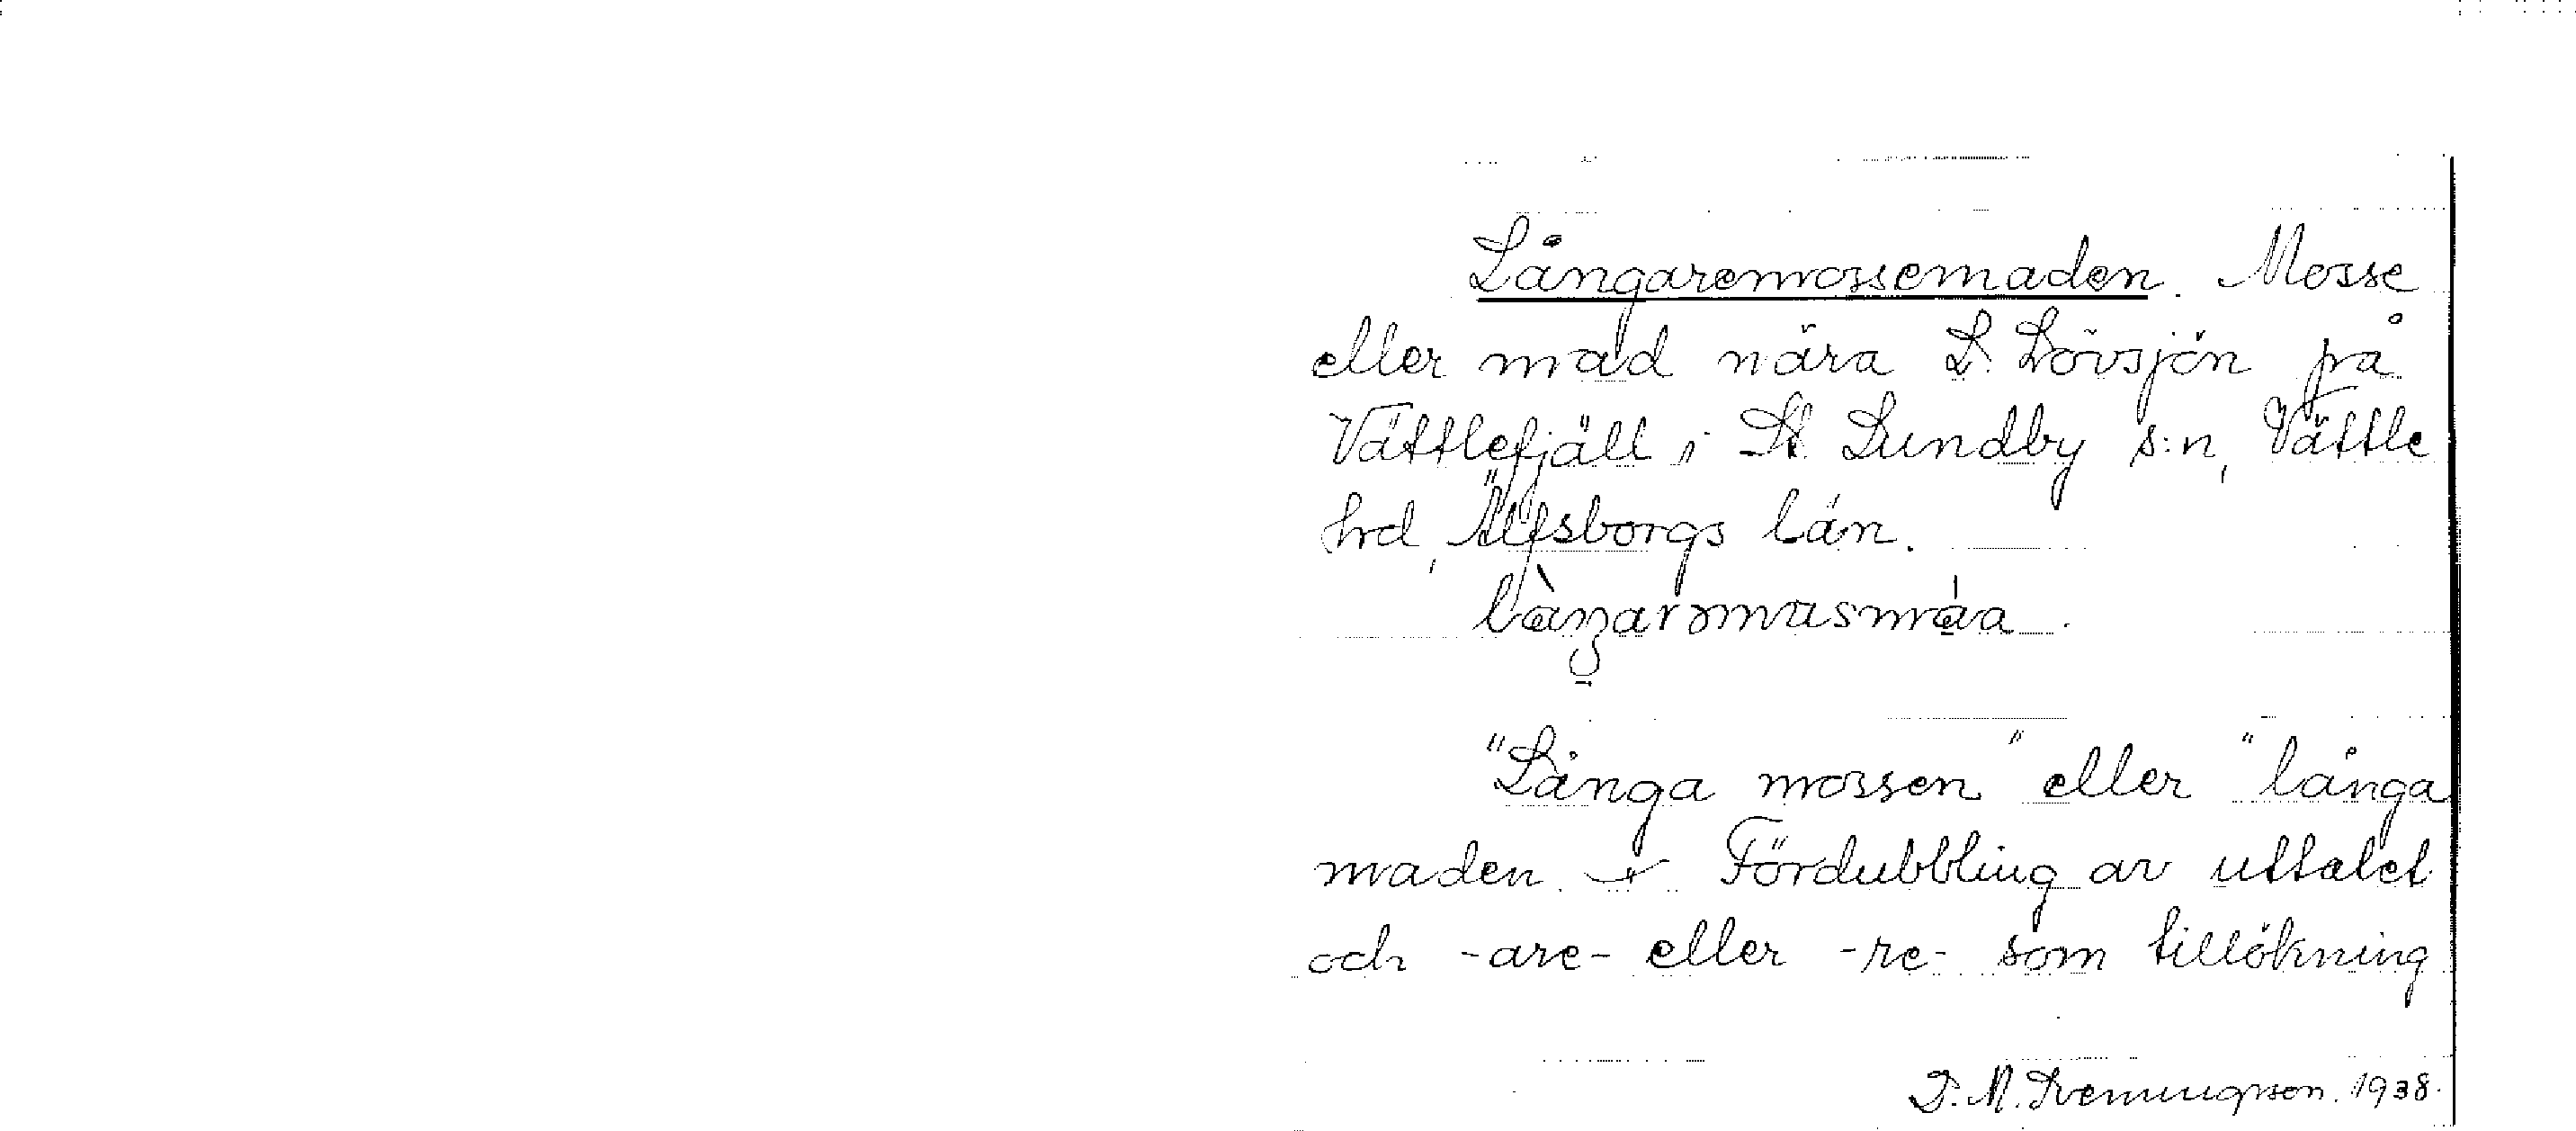 Långaremossemaden. Mosse
eller mad nära L. Lövsjön på
Vättlefjäll i St. Lundby s:n, Vättle
hrd, Älfsborgs län.
"Långa mossen" eller "långa
maden. Fördubbling av uttalet
och -are- eller -re- som tillökning
D. M. 1938.